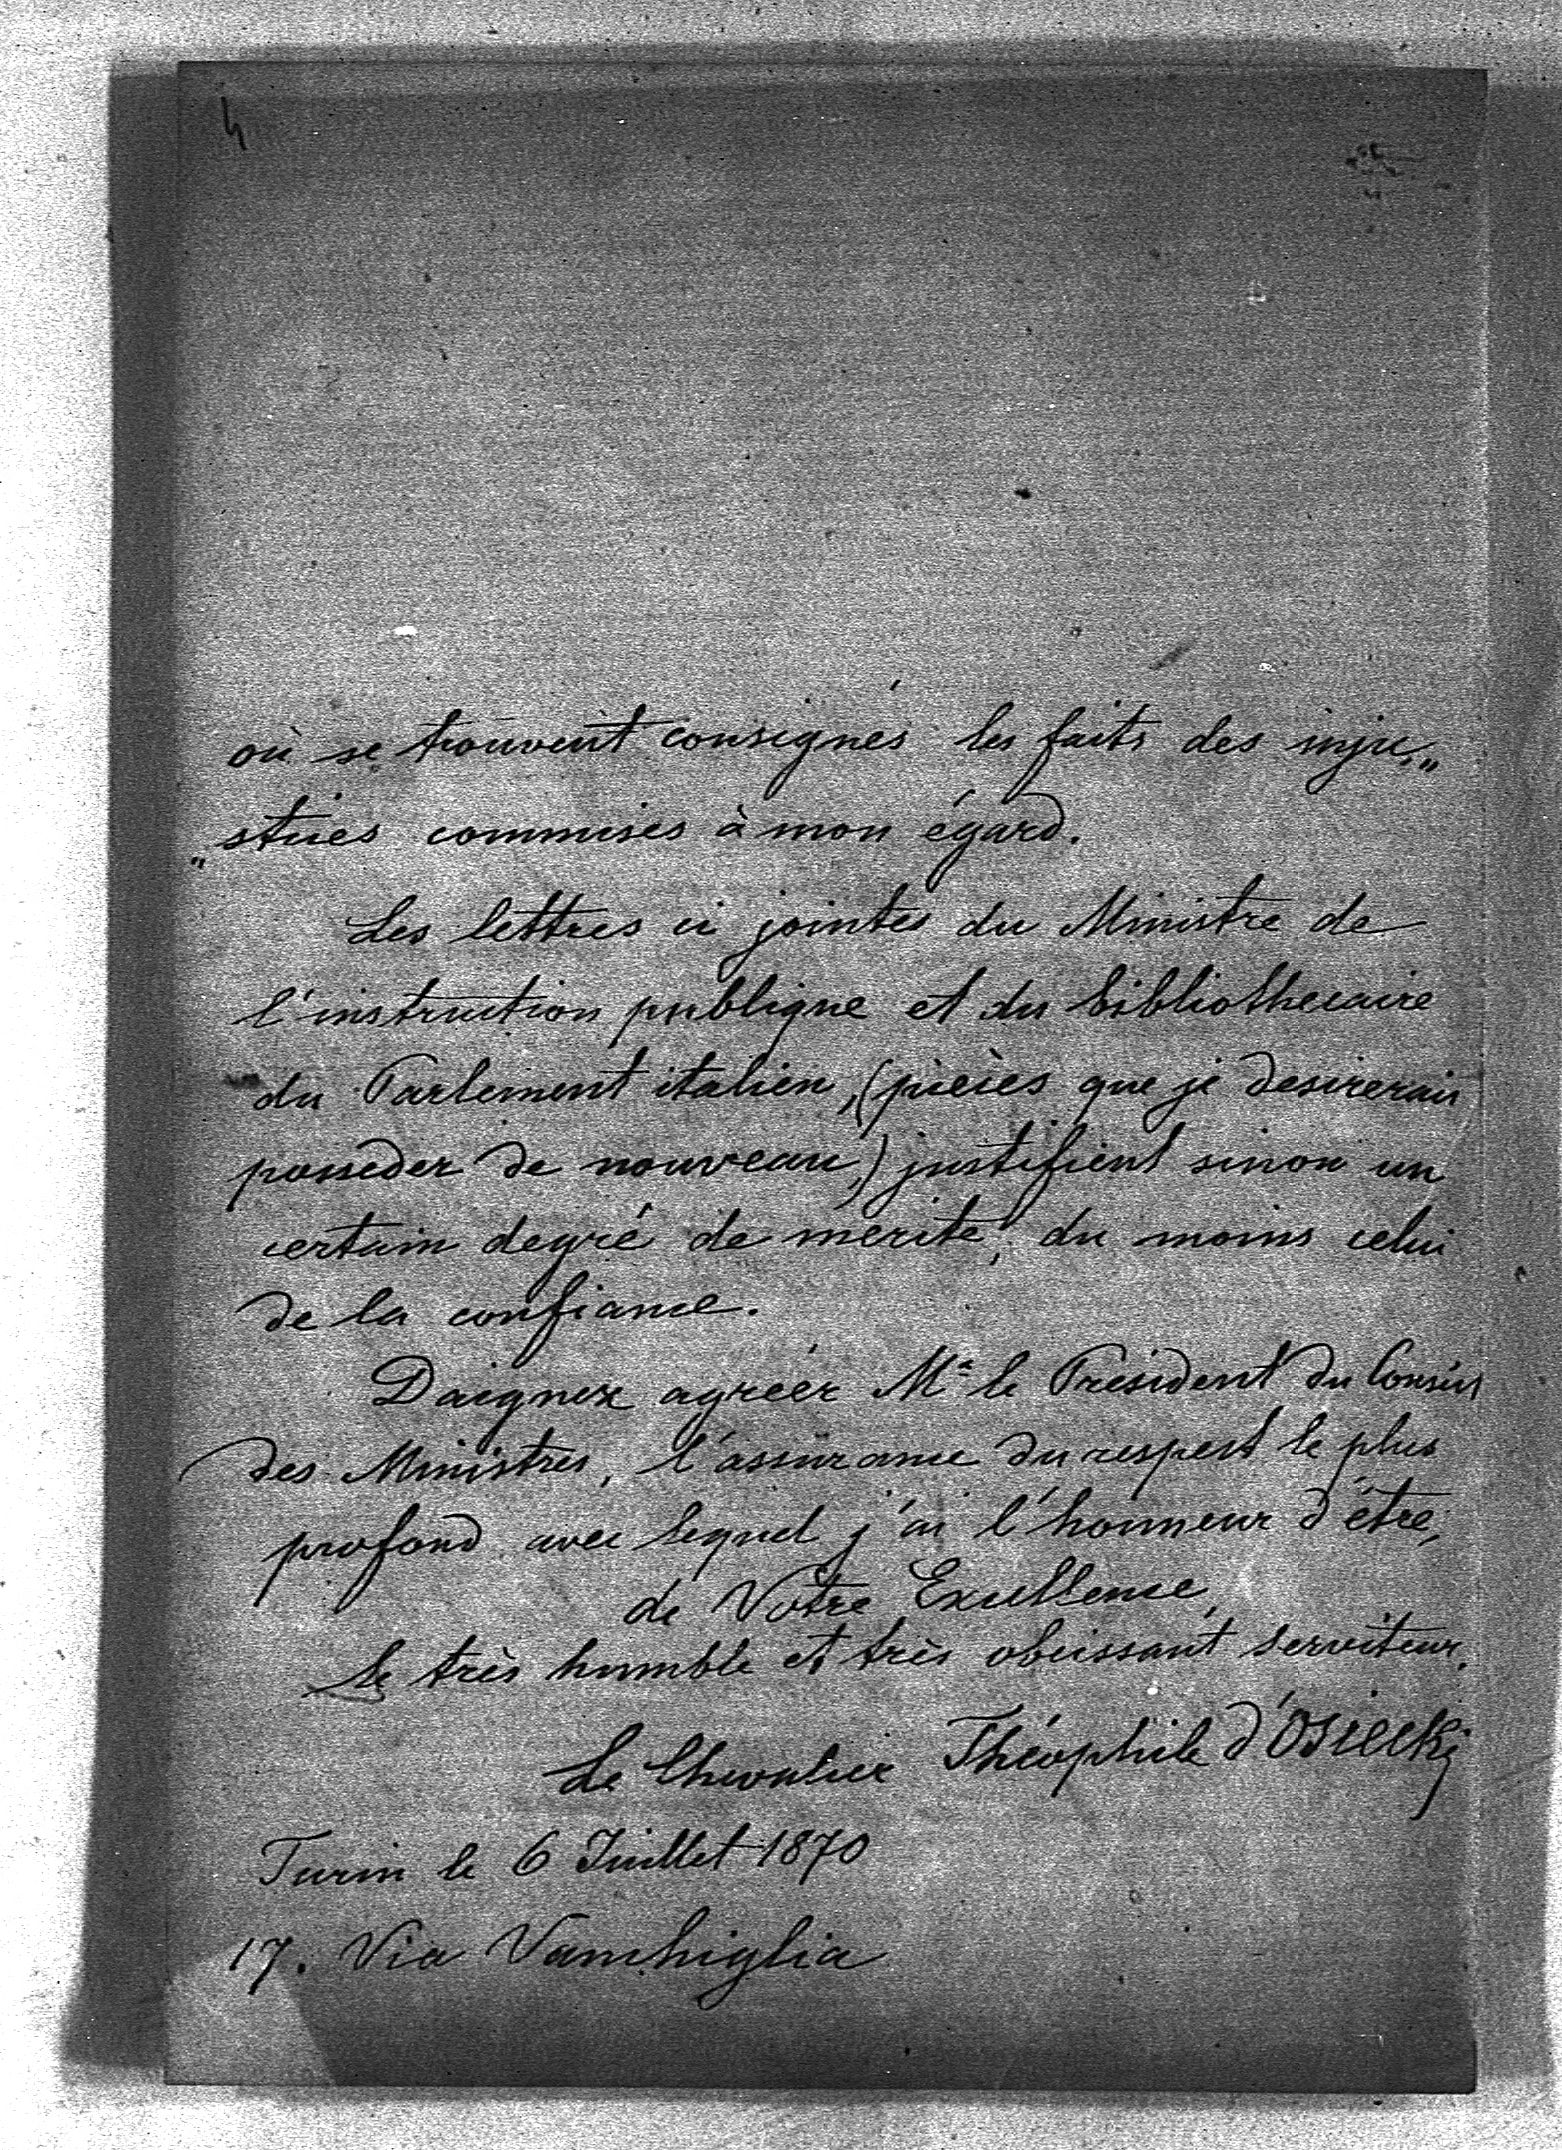 4
où se trouvent consignés les faits des inju„
„stices commises à mon égard.
Les lettres ci jointes du Ministre de
l'instruction publique et du bibliothecaire
du Parlement italien, (pièces que je desirerais
posseder de nouveau,) justifient sinon un
certain degré de merite, du moins celui
de la confiance.
Daignez agréer Mr le Président du Conseil
des Ministres, l'assurance du respect le plus
profond avec lequel j'ai l'honneur d'être,
de Votre Excellence,
le très humble et très obeissant serviteur.
Le Chevalier Théophile d'Osiecki
Turin le 6 Juillet 1870
17. Via Vanchiglia